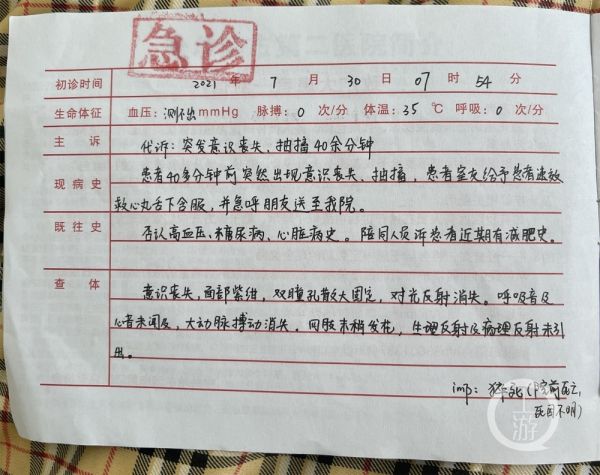 急诊
初诊时间 2021 年 7 月 30 日 07 时 54 分
生命体征 血压: 测不出 mmHg 脉搏: 0 次/分 体温: 35 ℃ 呼吸: 0 次/分
主诉 代诉: 突发意识丧失, 抽搐40余分钟
现病史 患者40多分钟前突然出现意识丧失、抽搐, 患者室友给予患者速效
救心丸舌下含服, 并急呼朋友送至我院。
既往史 否认高血压、糖尿病、心脏病史。陪同人员诉患者近期有减肥史。
查体 意识丧失, 面部紫绀, 双瞳孔散大固定, 对光反射消失。呼吸音及
心音未闻及, 大动脉搏动消失。四肢末梢发花, 生理反射及病理反射未引
出。
imp: 猝死(院前死亡,
死因不明)
上游